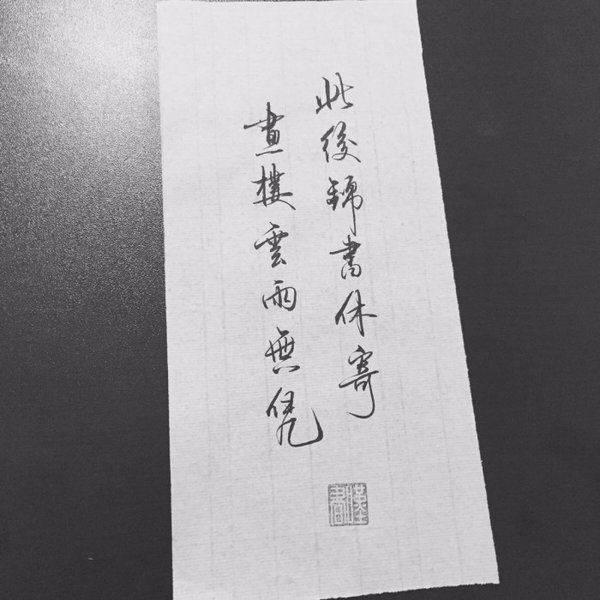 此後錦書休寄
畫樓雲雨無凭